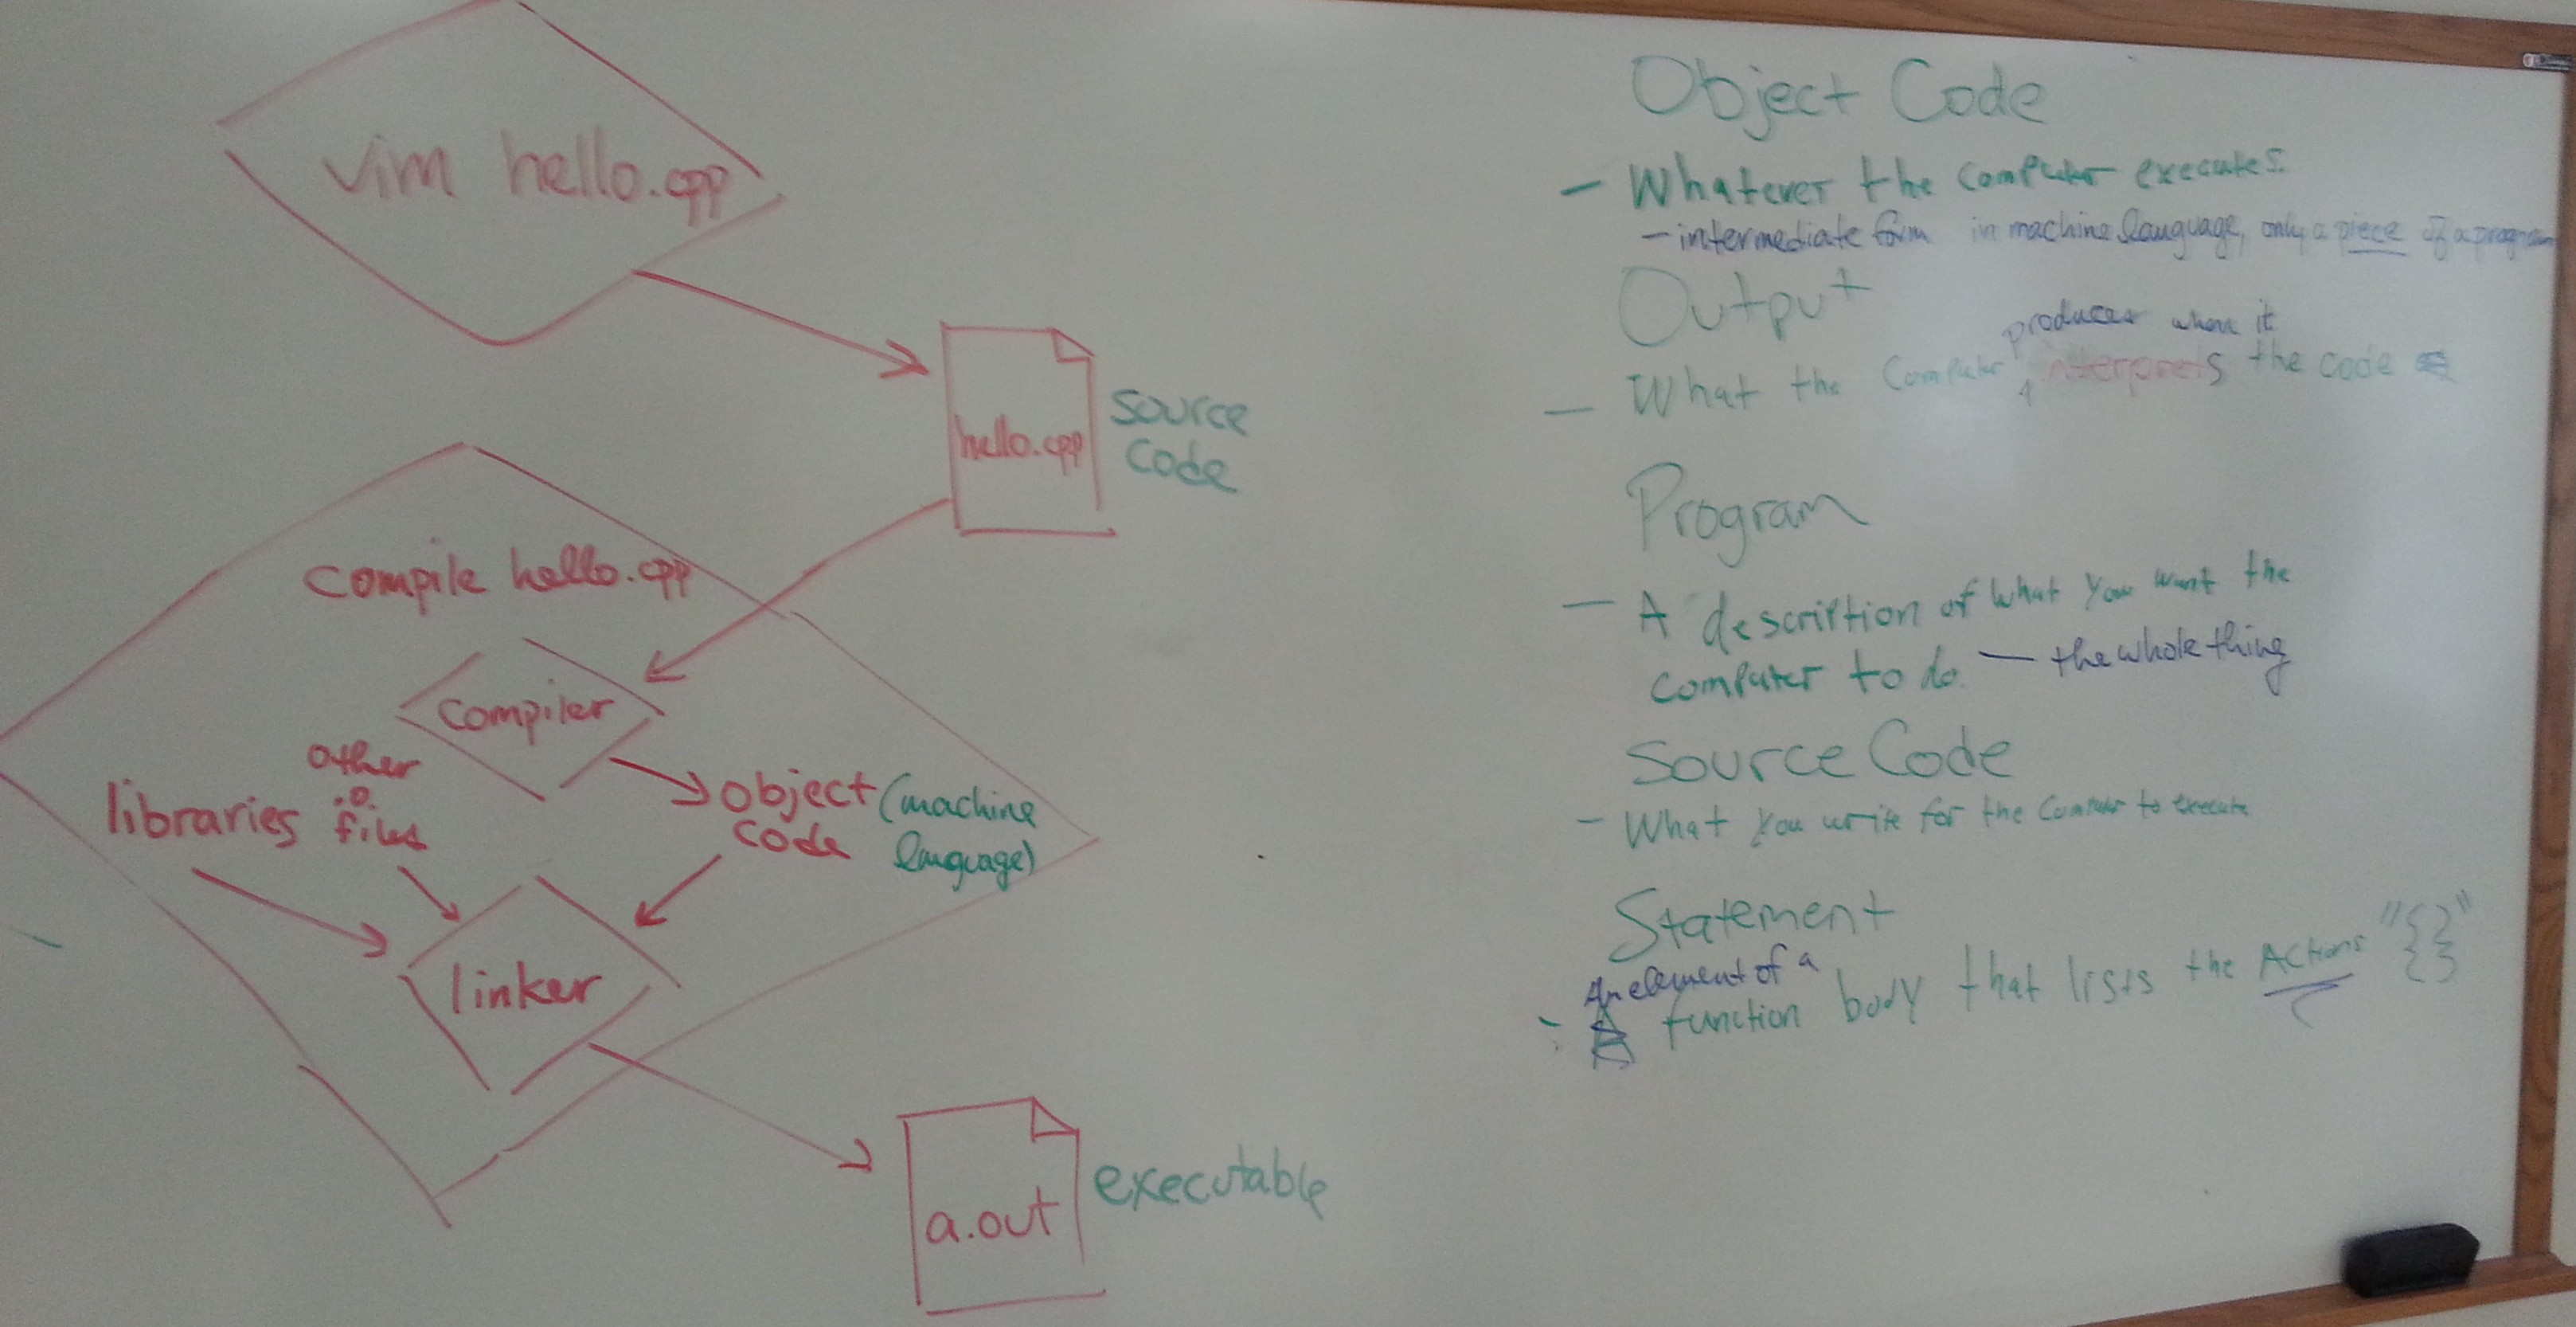 vim hello.cpp
hello.cpp
source
code
compile hello.cpp
compiler
other
libraries .o.
files
object (machine
code language)
linker
a.out
executable
Object Code
- Whatever the computer executes.
- intermediate form in machine language, only a piece of a program
Output
produces when it
- What the computer interprets the code
Program
- A description of what you want the
computer to do. - the whole thing
Source Code
- What you write for the computer to execute
Statement
An element of a
- A function body that lists the Actions "{}"